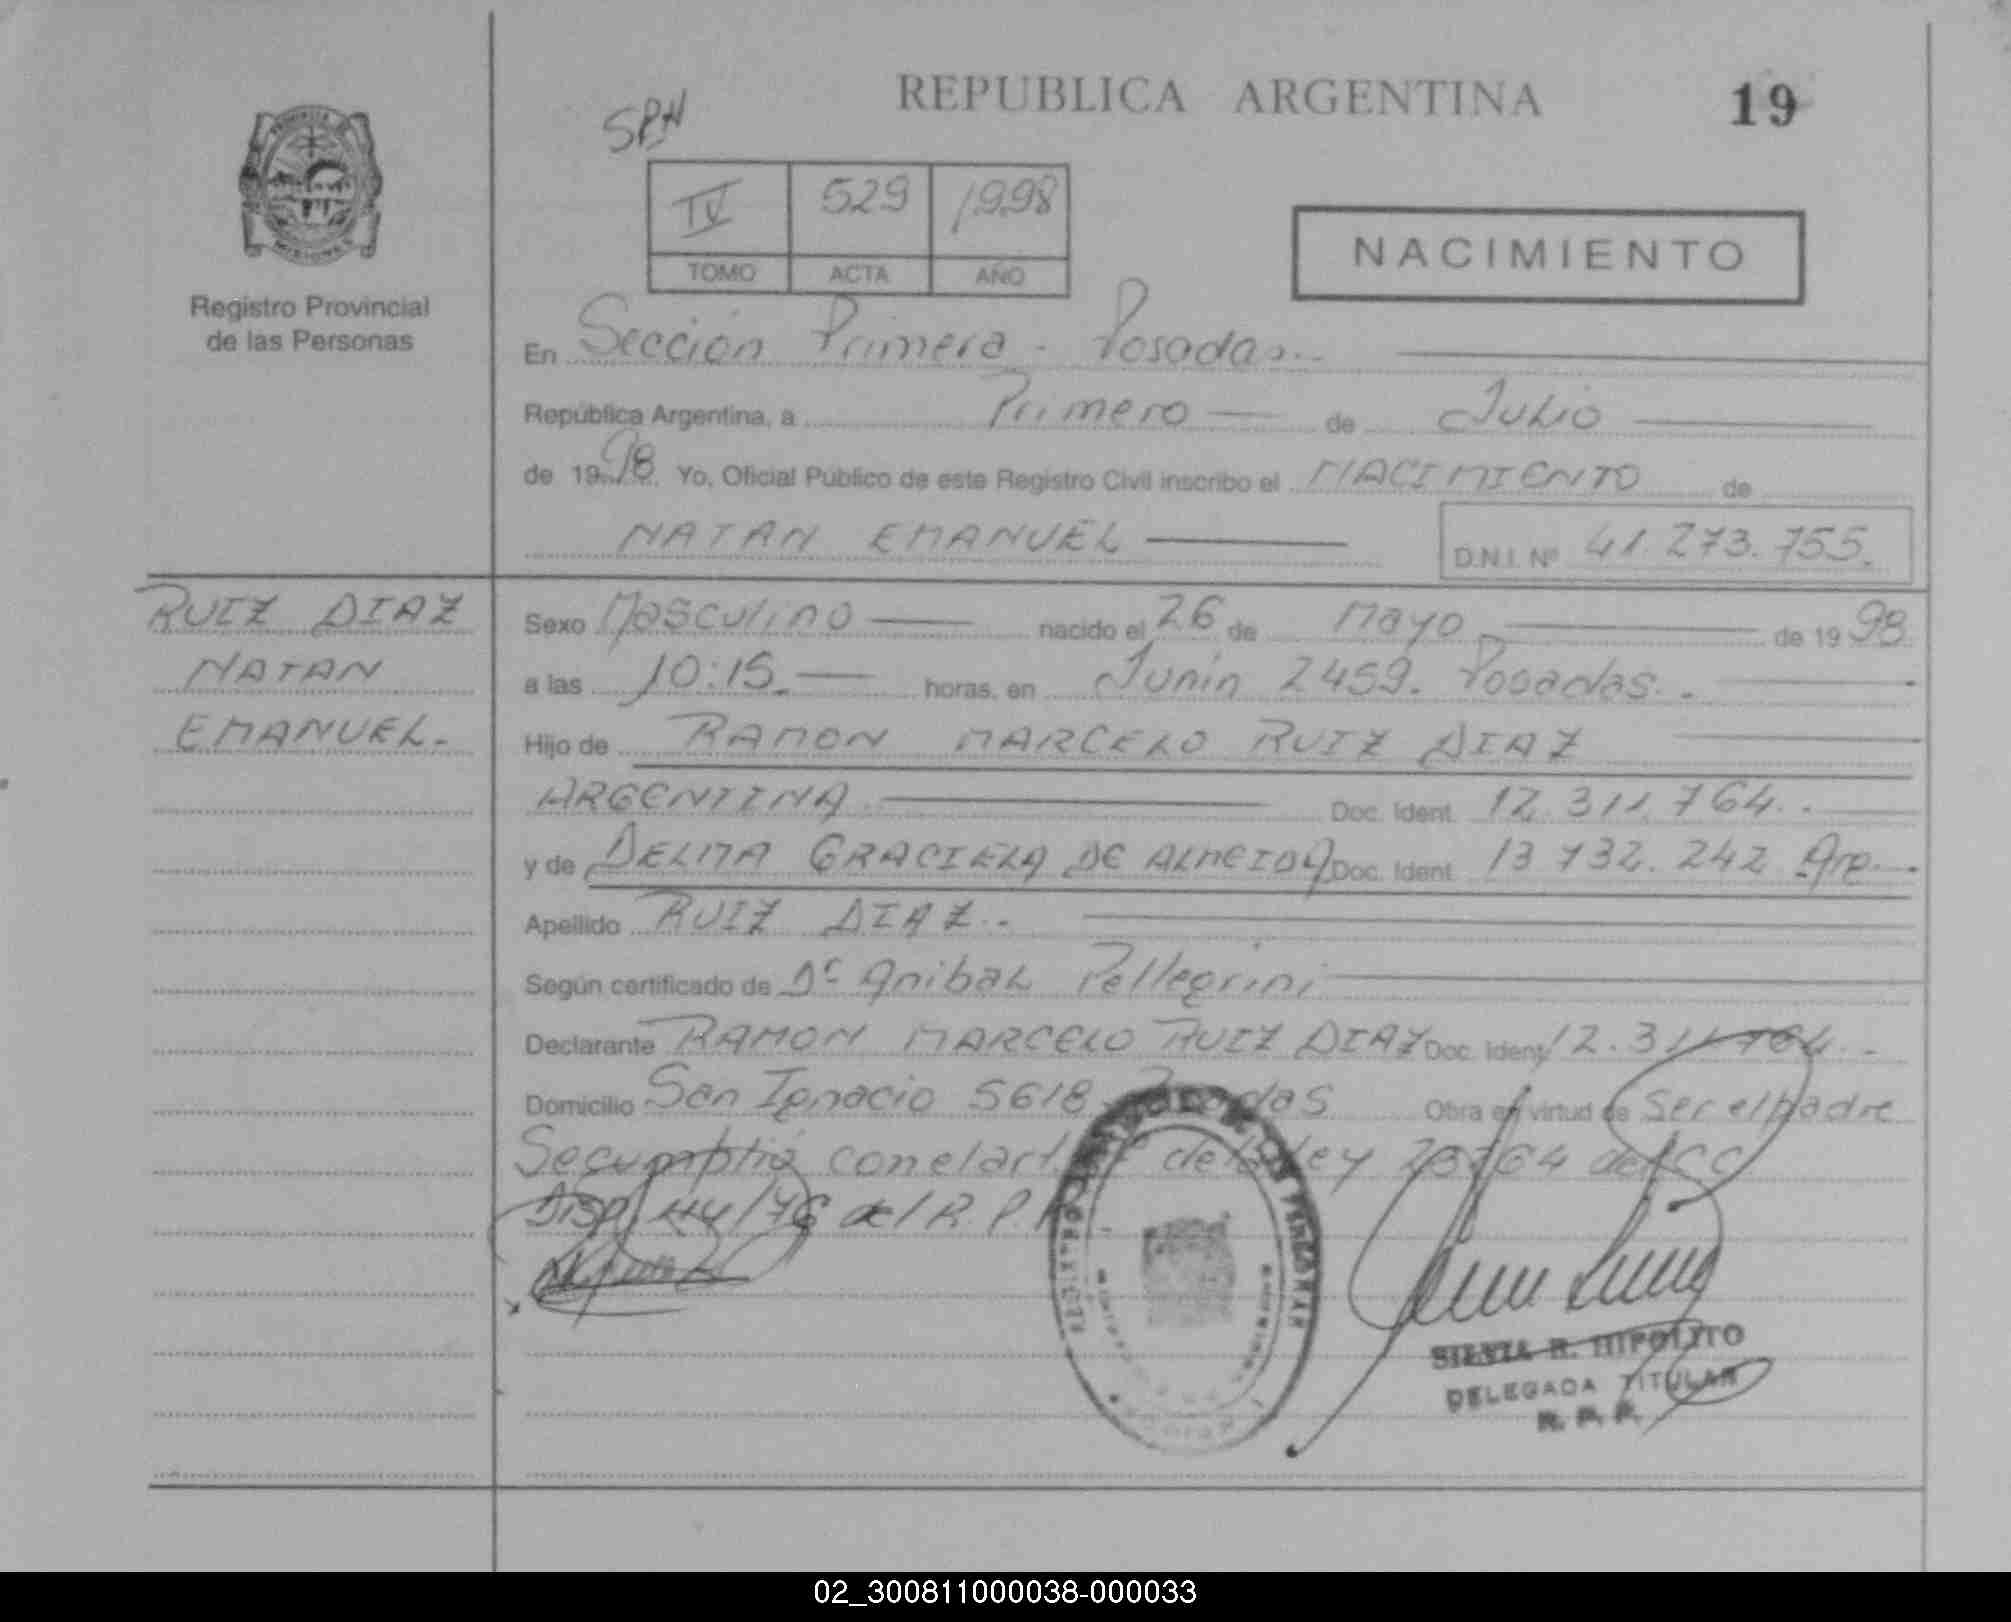 REPUBLICA ARGENTINA
19
SPN
IV 529 1998
TOMO ACTA AÑO
NACIMIENTO
Registro Provincial
de las Personas
En Sección Primera - Posadas.-
República Argentina, a Primero de Julio
de 1998. Yo, Oficial Público de este Registro Civil inscribo el NACIMIENTO de
NATAN EMANUEL D.N.I. Nº 41.273.755.
RUIZ DIAZ
NATAN
EMANUEL.-
Sexo Masculino nacido el 26 de Mayo de 1998
a las 10:15.- horas, en Junin 2459. Posadas.-
Hijo de RAMON MARCELO RUIZ DIAZ
ARGENTINA Doc. Ident. 12.311.764.-
y de DELMA GRACIELA DE ALMEIDA Doc. Ident. 13.732.242 Arg.-
Apellido RUIZ DIAZ.-
Según certificado de Dr Anibal Pellegrini
Declarante RAMON MARCELO RUIZ DIAZ Doc. Ident. 12.311.764.-
Domicilio San Ignacio 5618 - Posadas Obra en virtud de Ser el padre
Se cumplió con el art. de la ley 23264 del CC
Disp. 114/76 del R.P.P.
SILVIA R. HIPOLITO
DELEGADA TITULAR
R. P. P.
02_300811000038-000033